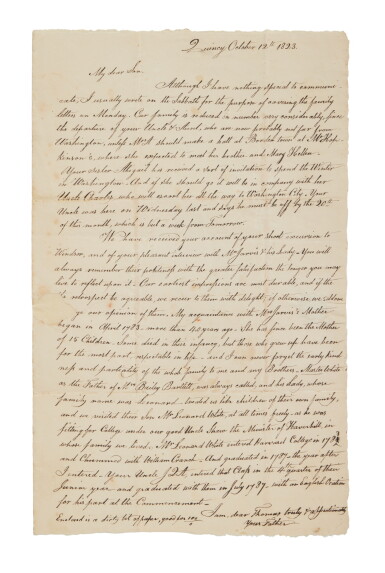 Quincy October 12th 1823.
My dear Son.
Although I have nothing special to communi-
cate, I usually write on the Sabbath for the purpose of securing the family
letter on Monday. Our family is reduced in number very considerably, from
the departure of your Uncle & Aunt, who are now probably not far from
Washington, unless Mrs A should make a halt at
where she expected to meet her brother and Mary Hellen
Your Sister Abigail has received a sort of invitation to spend the Winter
in Washington. And if she should go it will be in company with her
Uncle Charles, who will escort her all the way to Washington City. Your
Uncle was here on Wednesday last and says he must be off by the 20th
of this month, which is but a week from Tomorrow.
We have received your account of your short excursion to
Windsor, and of your pleasant interview with Mr Jarvis & his Lady. You will
always remember their politeness with the greater satisfaction the longer you may
live to reflect upon it. Our earliest impressions are most durable, and if the
retrospect be agreeable, we recur to them with delight, if otherwise, we
the opinion of them. My acquaintance with Mrs Jarvis's Mother
began in April 1783. more than 40 years ago. She has since been the Mother
of 15 Children. Some died in their infancy, but those who grew up have been
for the most part respectable in life. and I can never forget the early kind
ness and partiality of the whole family to me and my Brothers. Master White
as the Father of Mrs Betsy Bartlett, was always called, and his lady, whose
family name was Leonard. treated us like children of their own family,
and we visited their Son Mr Leonard White, at all times freely. as he was
fitting for College under our good Uncle Shaw the Minister of Haverhill, in
whose family we lived. Mr Leonard White entered Harvard College in 1783
and Chummed with William Cranch. And graduated in 1787. the year after
I entered. Your Uncle J.Q.A. entered that Class in the 4th quarter of their
Junior year and graduated with them in July 1787, with an English Oration
for his part at the Commencement.
I am, dear Thomas truly & affectionately
Enclosed is a dirty bit of paper, good for one
Your Father